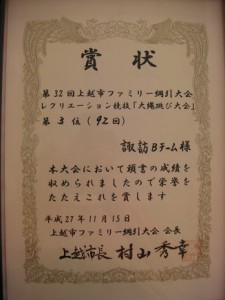 賞状
第32回上越市ファミリー綱引大会
レクリエーション競技「大縄跳び大会」
第3位(92回)
諏訪Bチーム様
本大会において頭書の成績を
収められましたので栄誉を
たたえこれを賞します
平成27年11月15日
上越市ファミリー綱引大会 会長
上越市長 村山秀幸